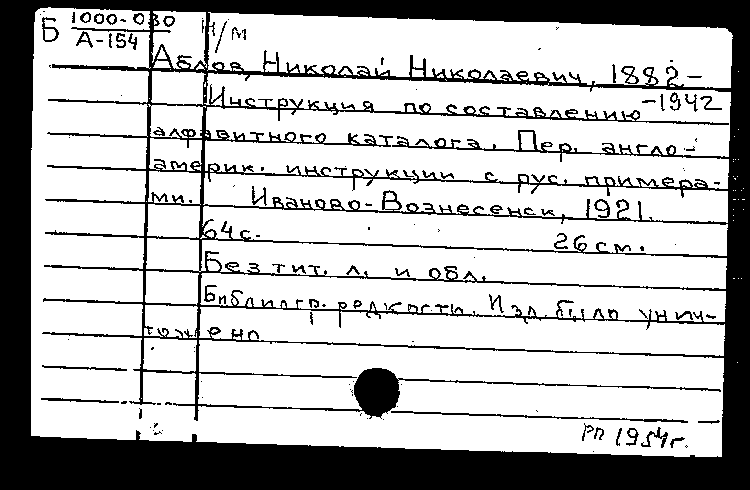 Б 1000-030 Н/М
А-154
Аблов, Николай Николаевич, 1882-
-1942
Инструкция по составлению
алфавитного каталога. Пер. англо-
америк. инструкции с рус. примера-
ми. Иваново-Вознесенск, 1921.
64с. 26см.
Без тит. л. и обл.
Библиогр. редкость. Изд. было унич-
тожено
РП 1954г.